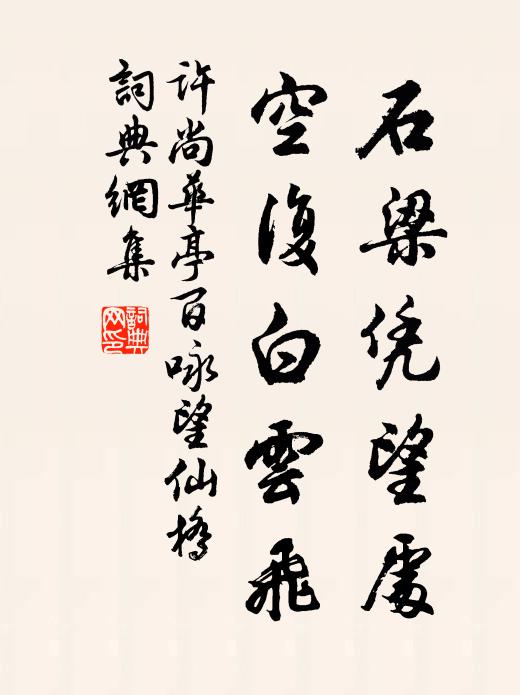 石梁凭望處
空復白雲飛
許尚華亭百咏望仙橋
詞典網集
詞典网印